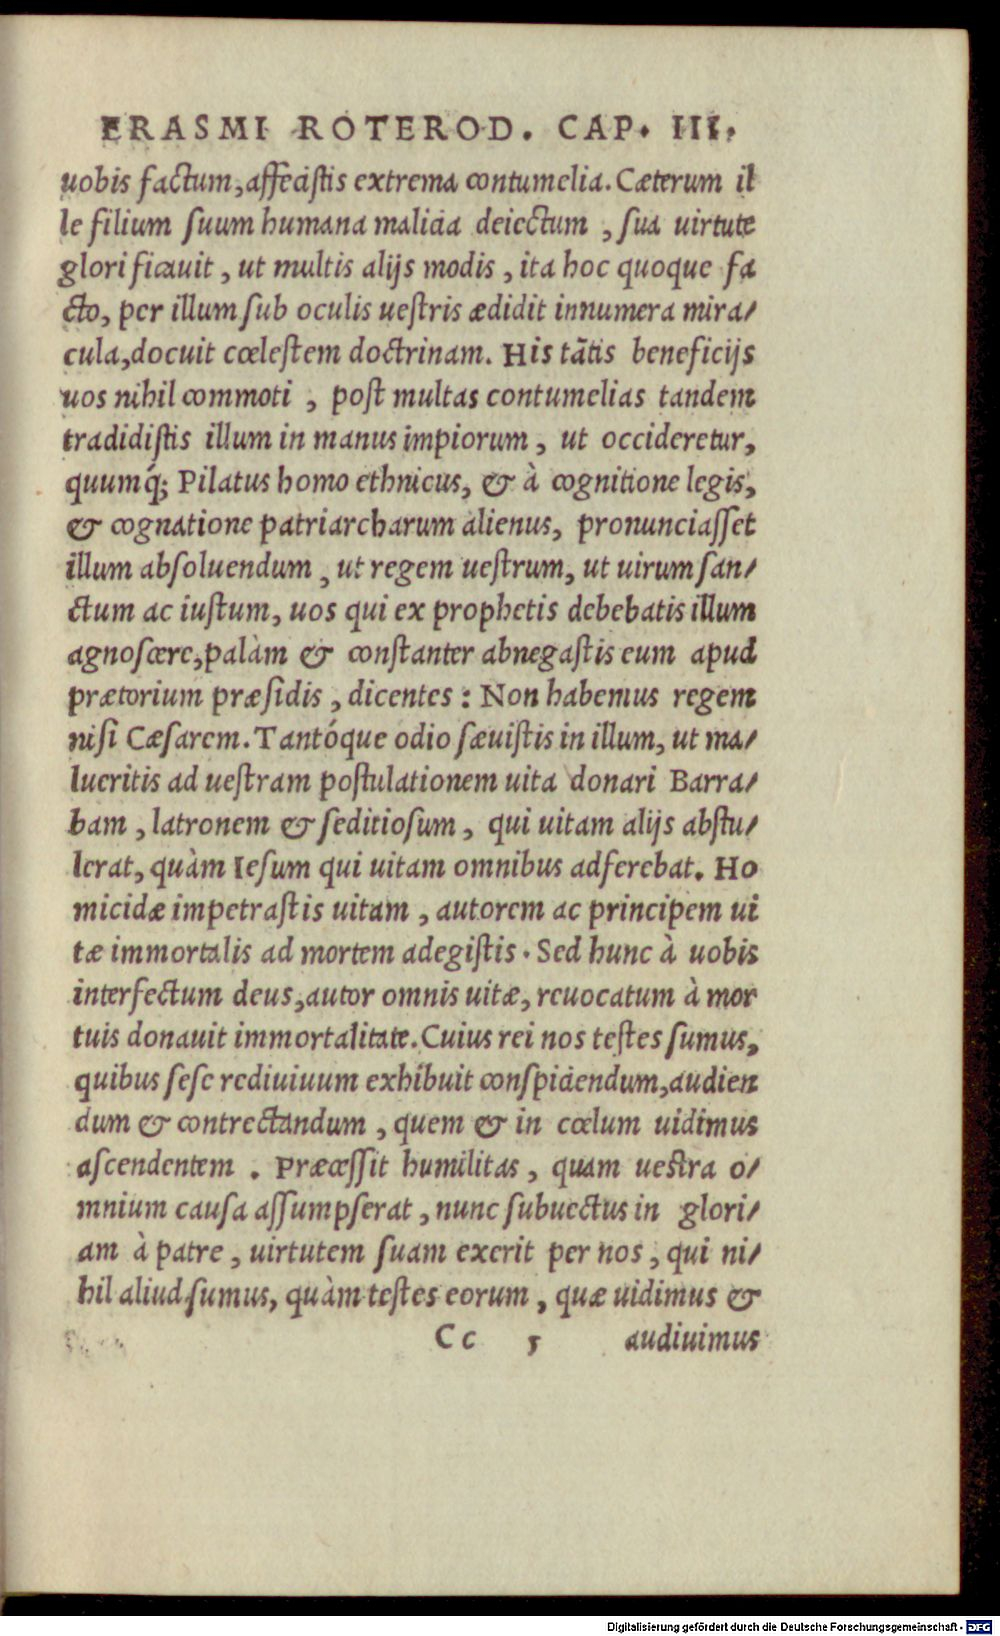 ERASMI ROTEROD. CAP. III.
uobis factum, affecistis extrema contumelia. Cæterum il
le filium suum humana malicia deiectum, sua uirtute
glorificauit, ut multis alijs modis, ita hoc quoque fa
cto, per illum sub oculis uestris ædidit innumera mira/
cula, docuit cœlestem doctrinam. His tātis beneficijs
uos nihil commoti, post multas contumelias tandem
tradidistis illum in manus impiorum, ut occideretur,
quumq́; Pilatus homo ethnicus, & à cognitione legis,
& cognatione patriarcharum alienus, pronunciasset
illum absoluendum, ut regem uestrum, ut uirum san/
ctum ac iustum, uos qui ex prophetis debebatis illum
agnoscere, palàm & constanter abnegastis eum apud
prætorium præsidis, dicentes: Non habemus regem
nisi Cæsarem. Tantóque odio sæuistis in illum, ut ma/
lueritis ad uestram postulationem uita donari Barra/
bam, latronem & seditiosum, qui uitam alijs abstu/
lerat, quàm Iesum qui uitam omnibus adferebat. Ho
micidæ impetrastis uitam, autorem ac principem ui
tæ immortalis ad mortem adegistis. Sed hunc à uobis
interfectum deus, autor omnis uitæ, reuocatum à mor
tuis donauit immortalitate. Cuius rei nos testes sumus,
quibus sese rediuiuum exhibuit conspiciendum, audien
dum & contrectandum, quem & in cœlum uidimus
ascendentem. Præcessit humilitas, quam uestra o/
mnium causa assumpserat, nunc subuectus in glori/
am à patre, uirtutem suam exerit per nos, qui ni/
hil aliud sumus, quàm testes eorum, quæ uidimus &
Cc 5 audiuimus
Digitalisierung gefördert durch die Deutsche Forschungsgemeinschaft - DFG